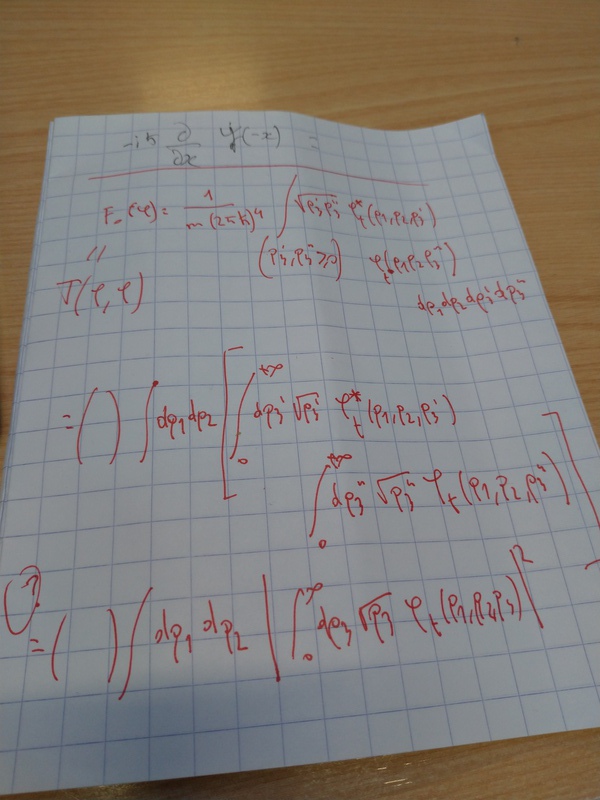 -iħ ∂/∂x ψ(-x) =
F_-(φ) = 1/(m(2πħ)^4) ∫ √(p₃'p₃'') φ*(p₁,p₂,p₃')
(p₃',p₃''≥0) φ(p₁p₂p₃'')
dp₁dp₂dp₃'dp₃''
T(φ,φ)
= ( ) ∫ dp₁dp₂ [ ∫₀^{+∞} dp₃' √p₃' φ_t*(p₁,p₂,p₃')
∫₀^{+∞} dp₃'' √p₃'' φ_t(p₁,p₂,p₃'') ]
= ( ) ∫ dp₁dp₂ | ∫₀^{+∞} dp₃ √p₃ φ_t(p₁,p₂,p₃) |²